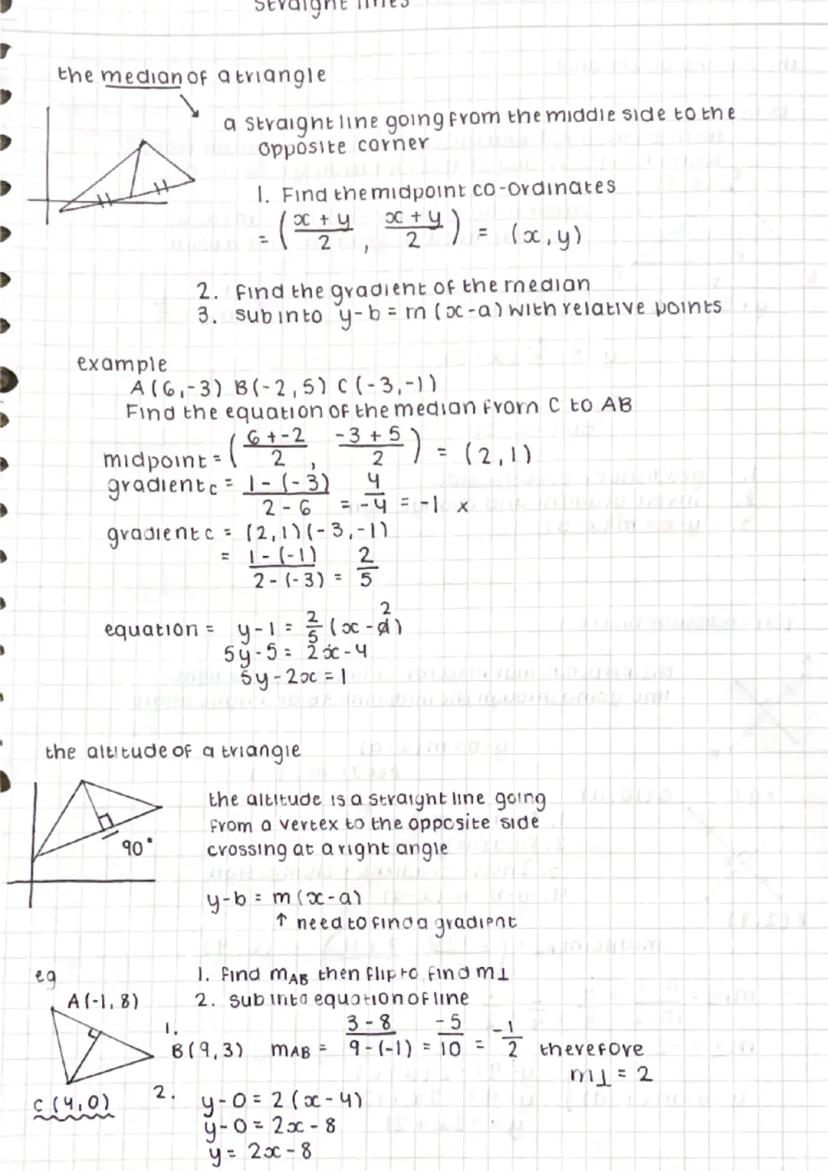 straight lines
the median of a triangle
a straight line going from the middle side to the
opposite corner
1. Find the midpoint co-ordinates
= (x + y / 2 , x + y / 2) = (x, y)
2. find the gradient of the median
3. sub into y-b = m (x-a) with relative points
example
A(6,-3) B(-2,5) C(-3,-1)
Find the equation of the median from C to AB
midpoint = (6 + -2 / 2 , -3 + 5 / 2) = (2,1)
gradient c = 1 - (-3) / 2 - 6 = 4 / -4 = -1 x
gradient c = (2,1) (-3,-1)
= 1 - (-1) / 2 - (-3) = 2 / 5
equation = y-1 = 2/5 (x - 2)
5y-5 = 2x-4
5y-2x = 1
the altitude of a triangle
90°
the altitude is a straight line going
from a vertex to the opposite side
crossing at a right angle
y-b = m (x-a)
↑ need to find a gradient
eg
1. find mAB then flip to find m⊥
2. sub into equation of line
A(-1,8)
1.
B(9,3) mAB = 3 - 8 / 9 - (-1) = -5 / 10 = -1 / 2 therefore
m⊥ = 2
C(4,0)
2. y-0 = 2 (x-4)
y-0 = 2x - 8
y = 2x - 8